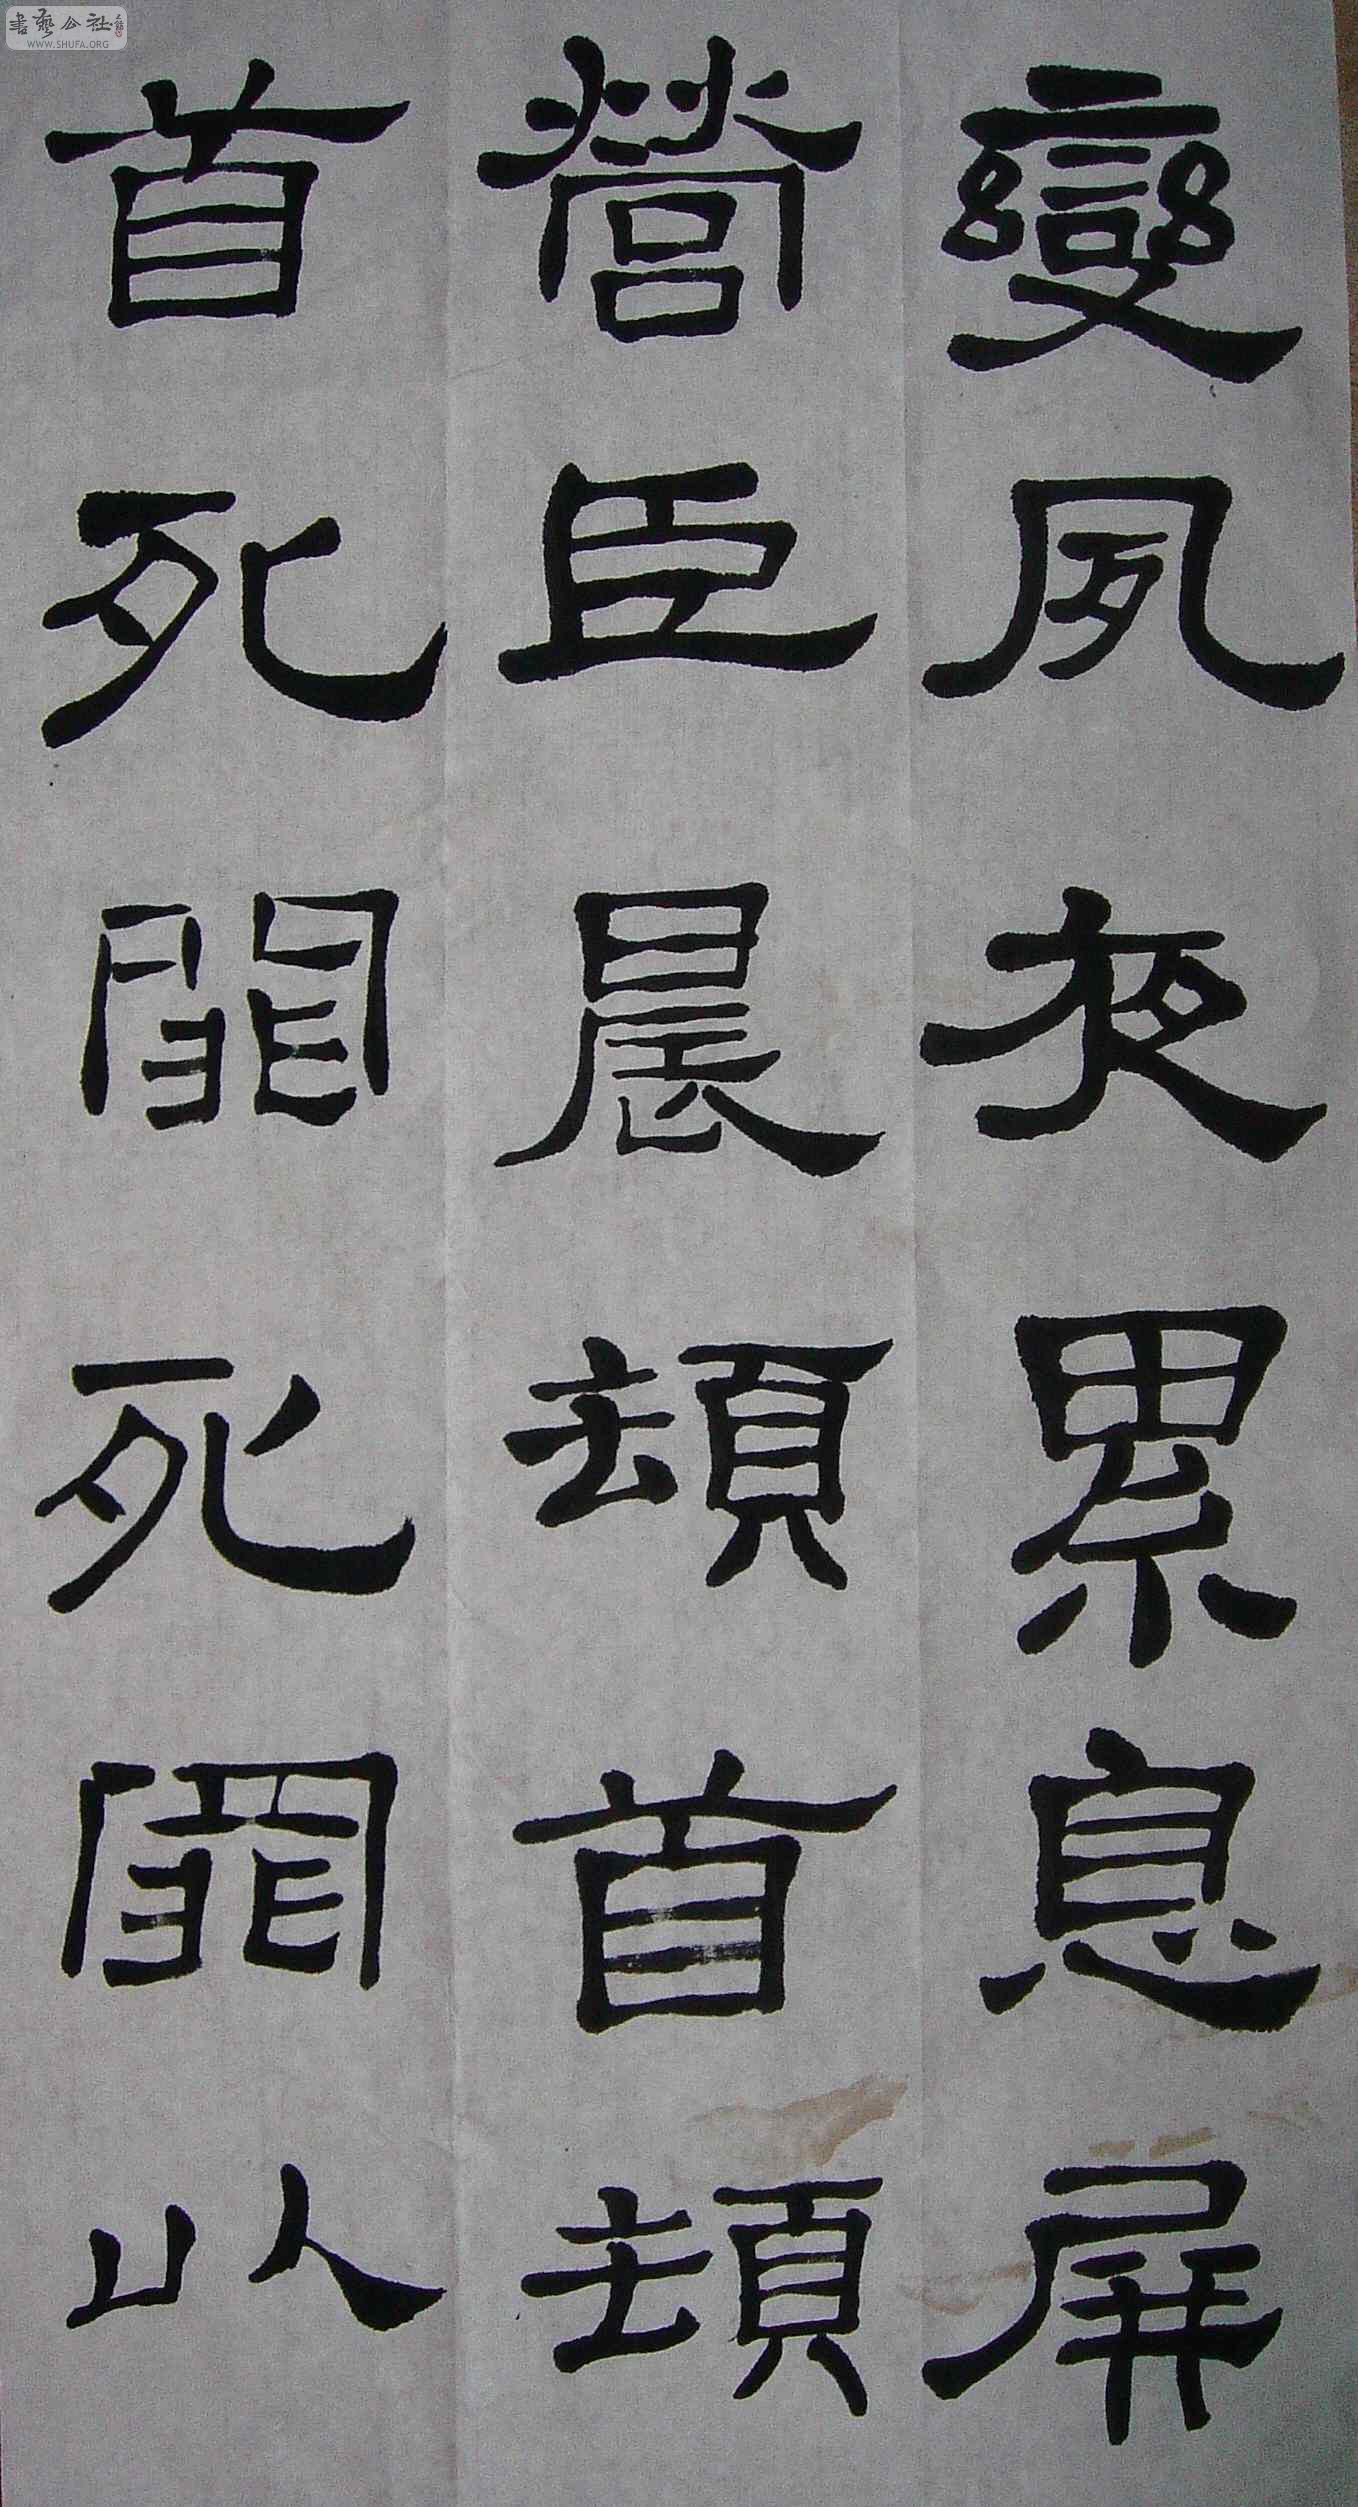 書藝公社
WWW.SHUFA.ORG
變夙夜累息屏
營臣晨頓首頓
首死罪死罪以